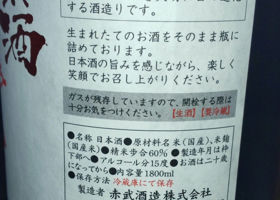 酒
る酒造りです。
生まれたてのお酒をそのまま瓶に
詰めております。
日本酒の旨みを感じながら、楽しく
笑顔でお召し上がりください。
ガスが残存していますので、開栓する際は
十分お気をつけください。【生酒】【要冷蔵】
●名称 日本酒●原材料名 米(国産)、米麹
(国産)●精米歩合60% ●製造年月は枠
下部へ●アルコール分15度●お酒は二十歳
になってから●内容量1800ml
●保存方法 冷蔵庫にて保存
製造者 赤武酒造株式会社